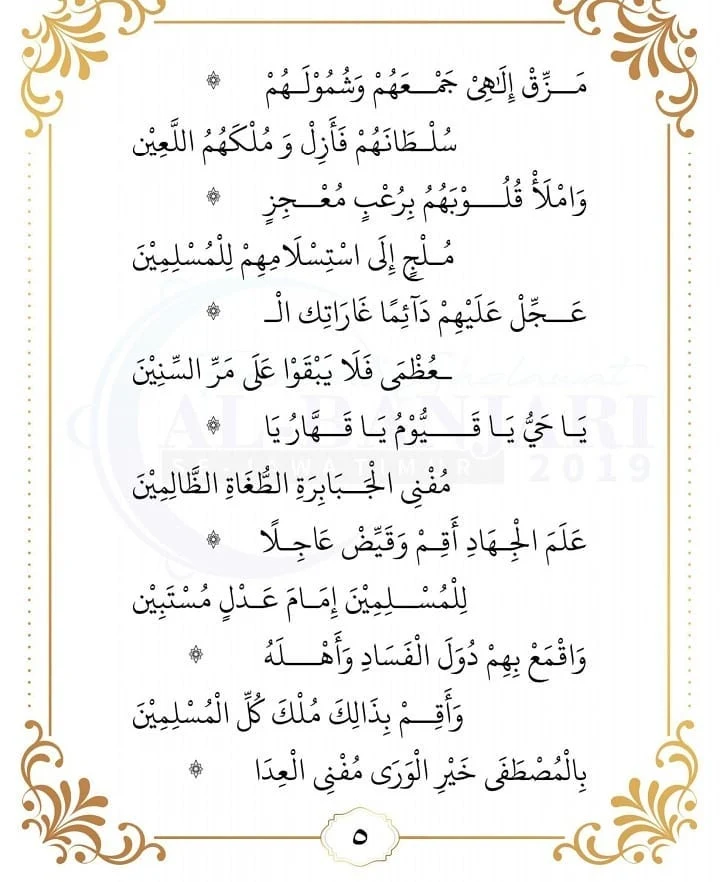 مَـــزِّقْ إِلٰهِىْ جَمْـــعَهُمْ وَشُمُوْلَـــهُمْ ۞
سُلْـطَانَهُمْ فَأَزِلْ وَ مُلْكَهُمُ اللَّعِيْن
وَامْلَأْ قُلُـــــوْبَهُمُ بِرُعْبٍ مُعْـــجِزٍ ۞
مُـلْجٍ إِلَى اسْتِسْلَامِهِمْ لِلْمُسْلِمِيْنَ
عَـــجِّلْ عَلَيْهِمْ دَآئِمًا غَارَاتِك الْـ ۞
ـعُظْمَى فَلَا يَبْقَوْا عَلَى مَرِّ السِّنِيْنَ
يَـا حَيُّ يَـا قَـــــيُّوْمُ يَـا قَـــهَّارُ يَا ۞
مُفْنِى الْجَـــبَابِرَةِ الطُّغَاةِ الظَّالِمِيْنَ
عَلَمَ الْجِـهَادِ أَقِـمْ وَقَيِّضْ عَاجِـلًا ۞
لِلْمُسْـــلِمِيْنَ إِمَـامَ عَـدْلٍ مُسْتَبِيْن
وَاقْمَعْ بِهِمْ دُوَلَ الْفَسَادِ وَأَهْـــــلَهُ ۞
وَأَقِـــمْ بِذَالِكَ مُلْكَ كُلِّ الْمُسْلِمِيْنَ
بِالْمُصْطَفَى خَيْرِ الْوَرَى مُفْنِى الْعِدَا ۞
٥
Sholawat
AL-BANJARI
SE-JAWA TIMUR 2019